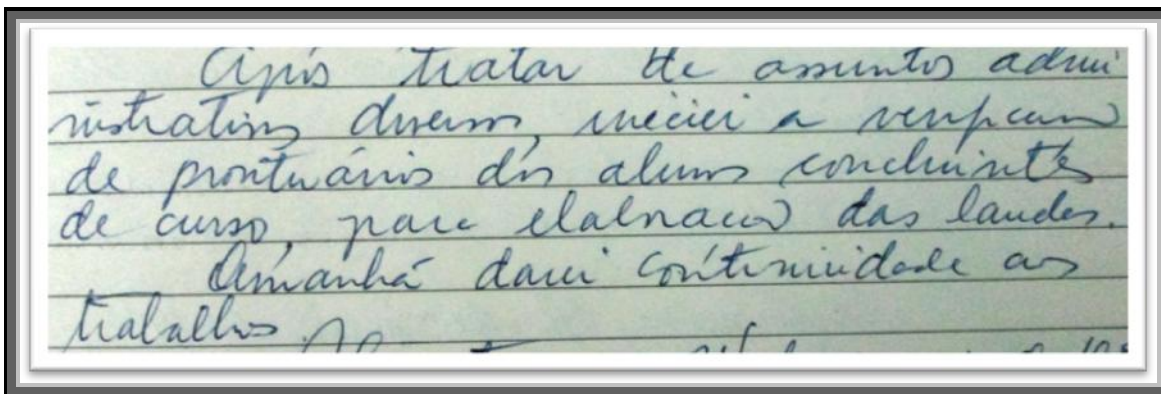 Após tratar de assuntos admi
nistrativos diversos, iniciei a verificação
de prontuários dos alunos concluintes
de curso, para elaboração das laudas.
Amanhã darei continuidade aos
trabalhos.